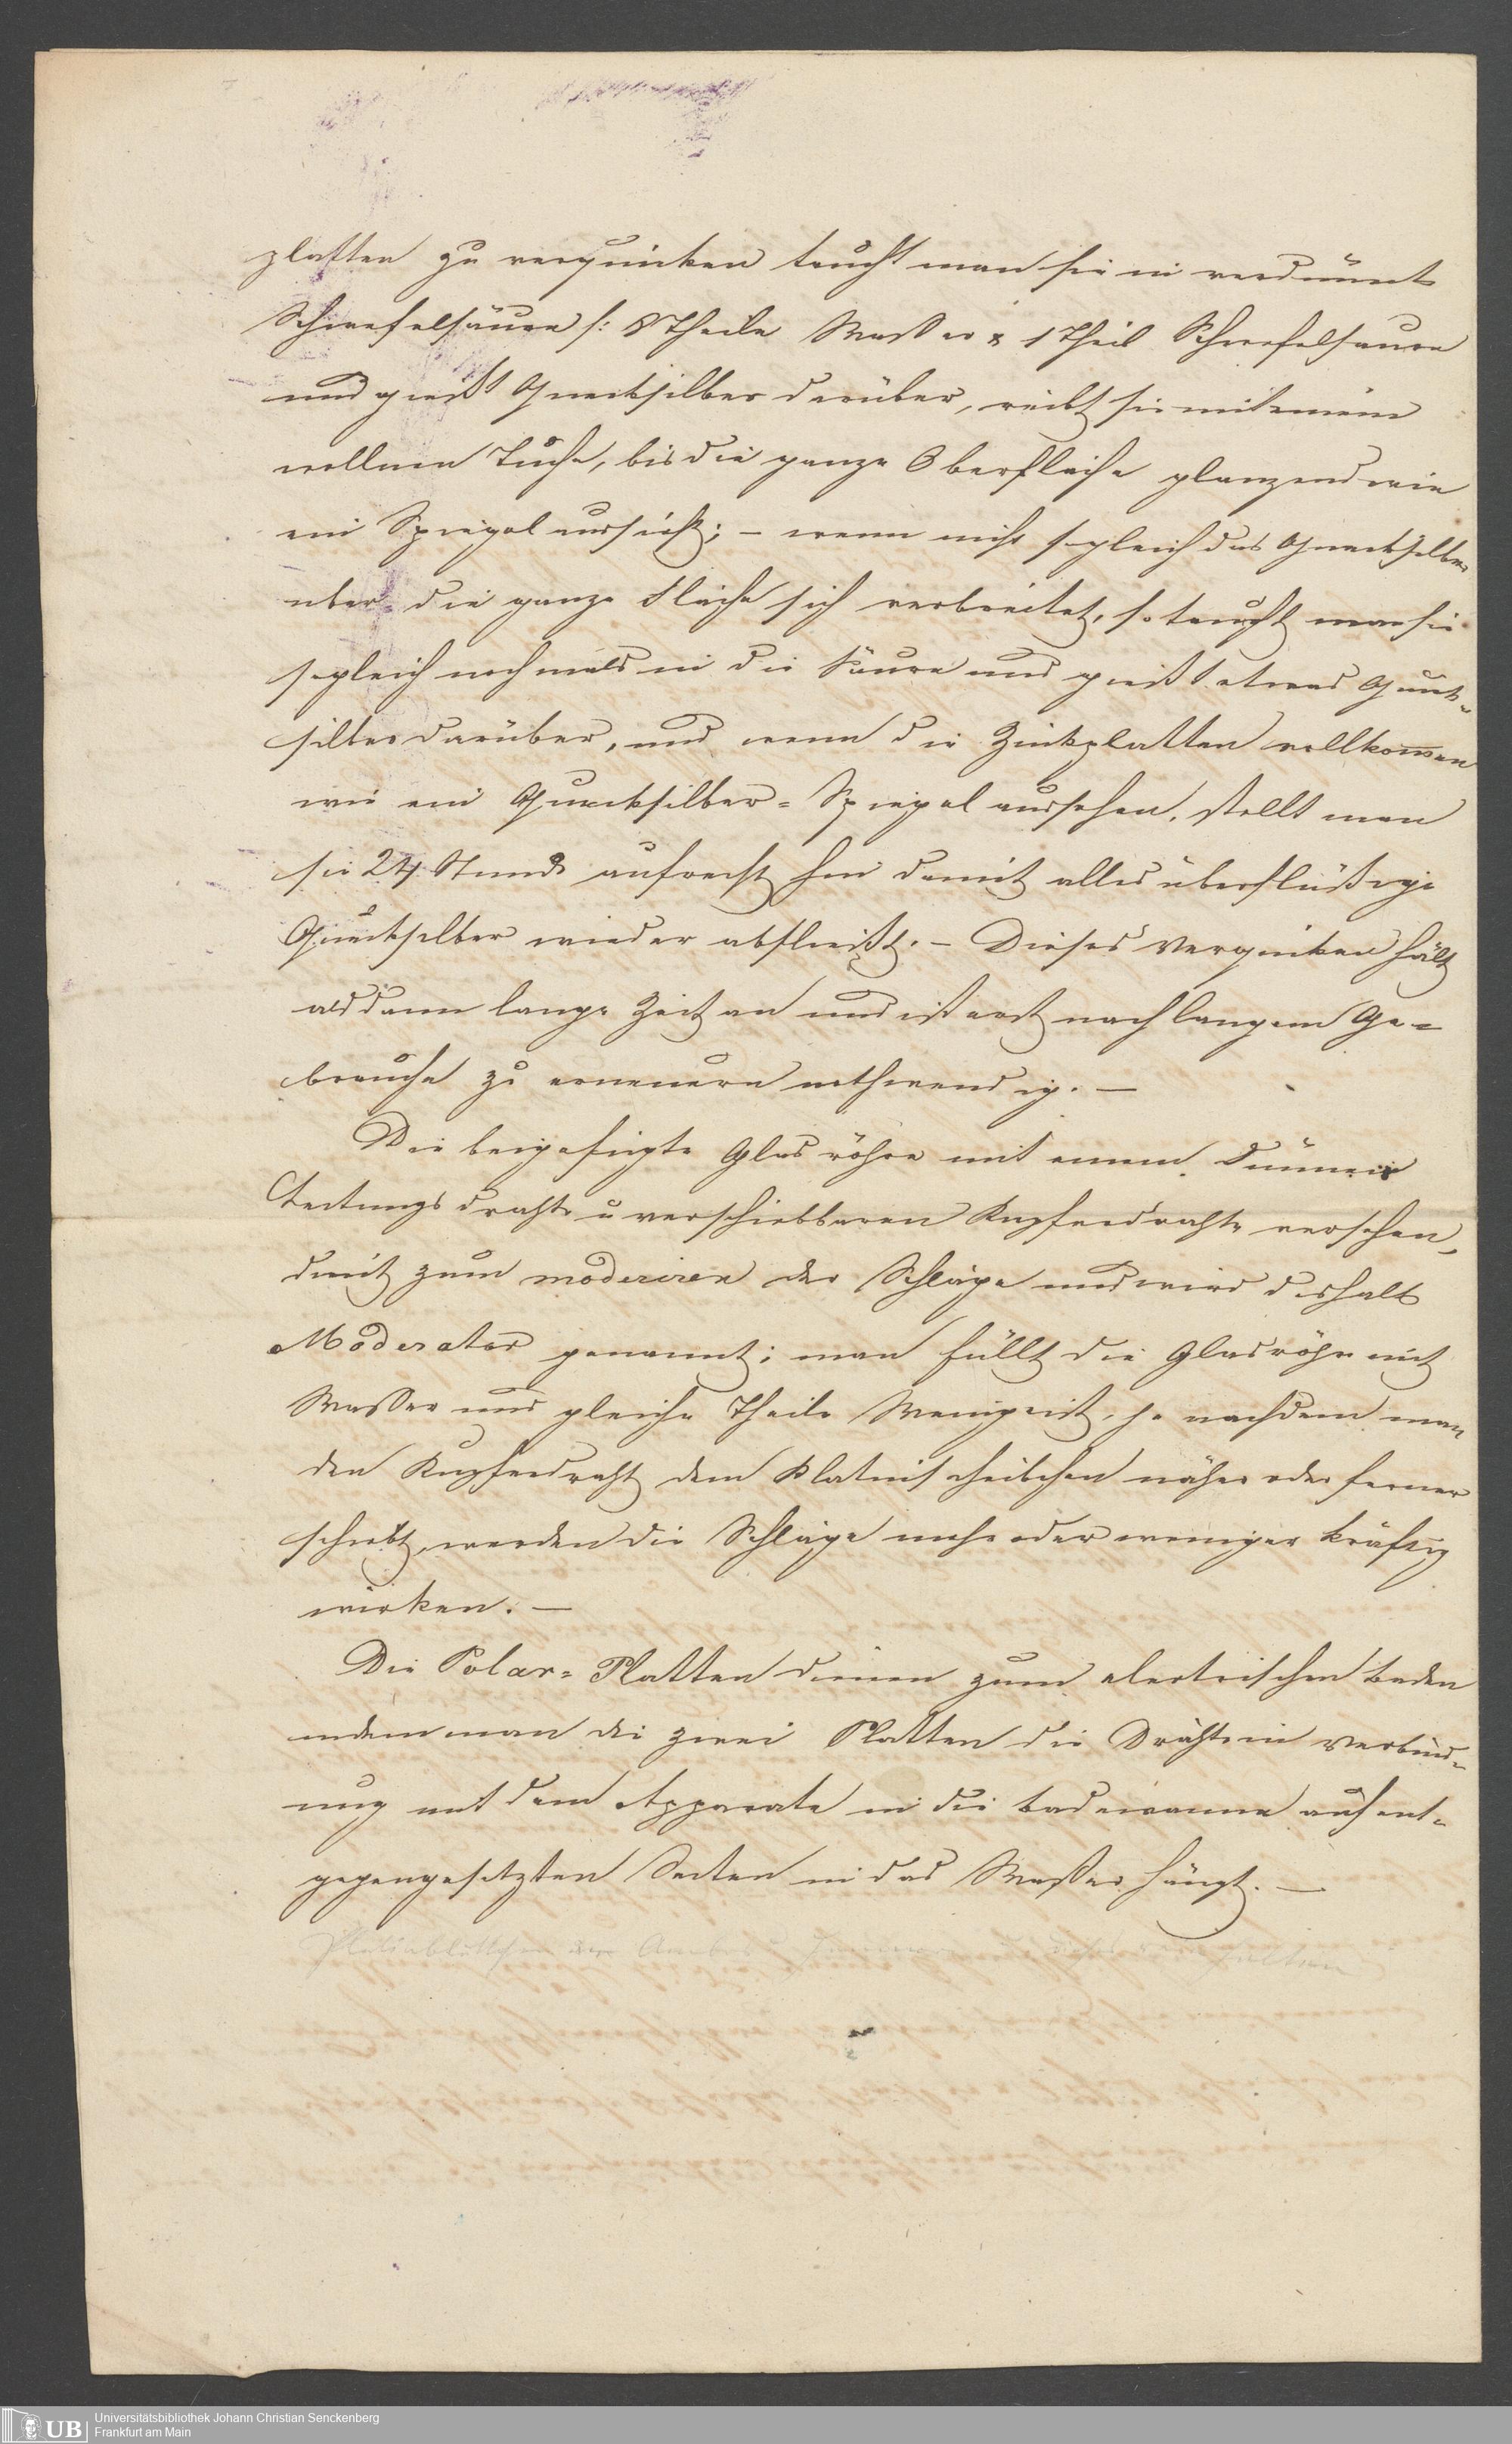 platten zu verquicken taucht man sie in verdünnte
Schwefelsäure /: 8 Theile Wasser & 1 Theil Schwefelsaure
und gießt Quecksilber darüber, reibt sie mit einem
wollnen Tuche, bis die ganze Oberfläche glanzend wie
ein Spiegel aussieht; – wenn nicht sogleich das Quecksilber
uber die ganze Fläche sich verbreitet, so taucht man sie
sogleich nochmals in die Säure und gießt etwas Queck-
silber darüber, und wenn die Zinkplatten vollkommen
wie ein Quecksilber-Spiegel aussehen, stellt man
sie 24 Stunde aufrecht hin damit alles überflüßige
Quecksilber wieder abfließt. – Dieses Verquicken hält
alsdann lange Zeit an und ist erst nach langem Ge-
brauche zu erneuern nothwendig. –
Die beigefügte Glasröhre mit einem dünnen
Leitungsdraht u verschiebbaren Kupferdrahte versehen,
dient zum moderiren der Schläge und wird deshalb
Moderator genannt; man füllt die Glasröhre mit
Wasser und gleiche Theile Weingeist, je nachdem man
den Kupferdraht dem Platinscheibchen näher oder ferner
schiebt, werden die Schläge mehr oder weniger kräftig
wirken. –
Die Polar-Platten dienen zum electrischen baden
indem man die zwei Platten die Drähte in Verbind-
ung mit dem Apparate in die badewanne auf ent-
gegengesetzten Seiten in das Wasser hängt. –
Platinblättchen
UB
Universitätsbibliothek Johann Christian Senckenberg
Frankfurt am Main